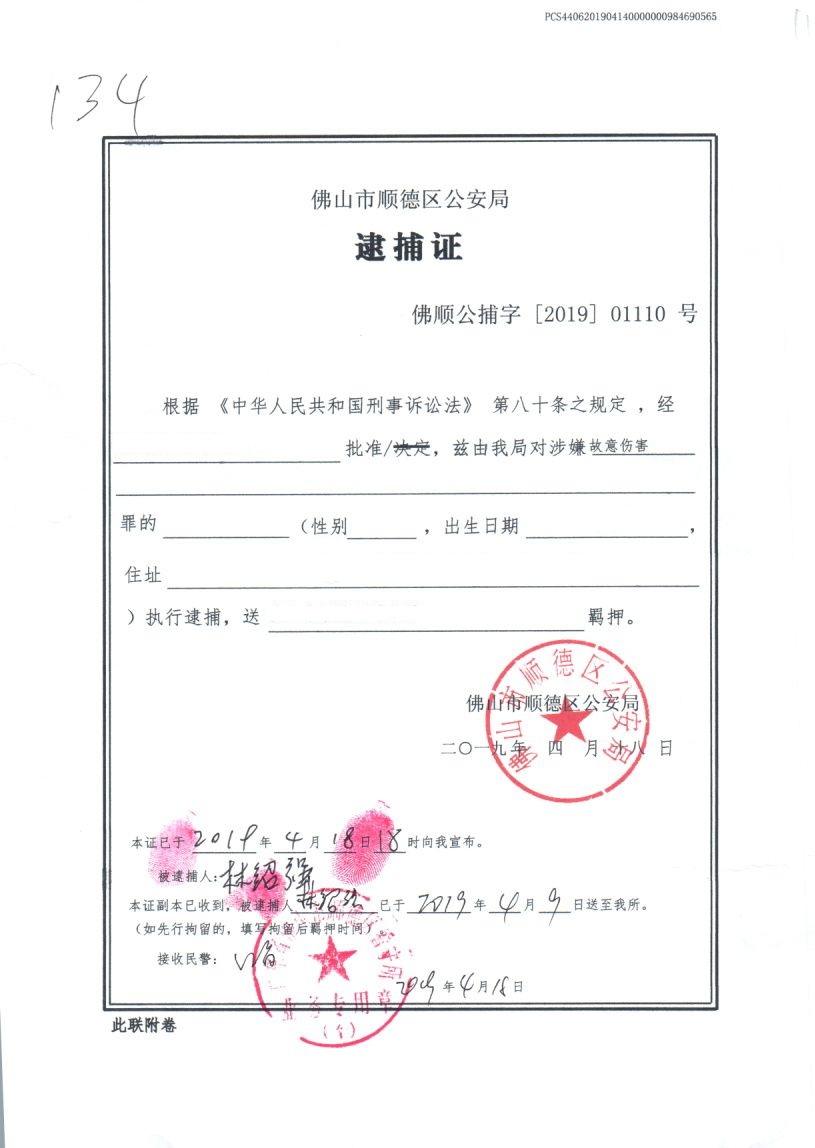 PCS4406201904140000000984690565
134
佛山市顺德区公安局
逮捕证
佛顺公捕字 [2019] 01110 号
根据 《中华人民共和国刑事诉讼法》 第八十条之规定 , 经
批准/决定, 兹由我局对涉嫌故意伤害
罪的 (性别 , 出生日期 ,
住址
) 执行逮捕, 送 羁押。
佛山市顺德区公安局
二〇一九年 四 月 十八 日
佛山市顺德区公安局
本证已于 2019 年 4 月 18 日 18 时向我宣布。
被逮捕人: 林绍强
本证副本已收到, 被逮捕人 已于 2019 年 4 月 9 日送至我所。
(如先行拘留的, 填写拘留后羁押时间)
接收民警:
看守所
业务专用章
2019 年 4 月 18 日
此联附卷